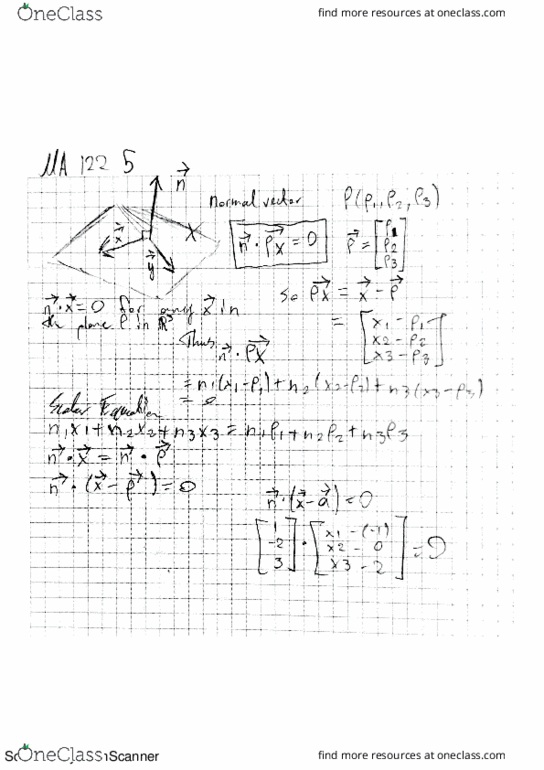 OneClass
find more resources at oneclass.com
MA 122 5
n⃗
Normal vector
P(p₁, p₂, p₃)
n⃗ · PX⃗ = 0
p⃗ = [p₁ p₂ p₃]
x⃗
y⃗
X
n⃗ · x⃗ = 0 for any x⃗ in
the plane P in R³
so PX⃗ = x⃗ - p⃗
= [x₁ - p₁ x2 - p2 x3 - p3]
Thus
n⃗ · PX⃗
= n₁(x₁ - p₁) + n₂(x2 - p2) + n3(x3 - p3)
= 0
Scalar Equation
n₁x₁ + n₂x₂ + n₃x₃ = n₁p₁ + n₂p₂ + n₃p₃
n⃗ · x⃗ = n⃗ · p⃗
n⃗ · (x⃗ - p⃗) = 0
n⃗ · (x⃗ - a⃗) = 0
[1 -2 3] · [x₁ - (-1) x2 - 0 x3 - 2] = 0
OneClass
Scanner
find more resources at oneclass.com